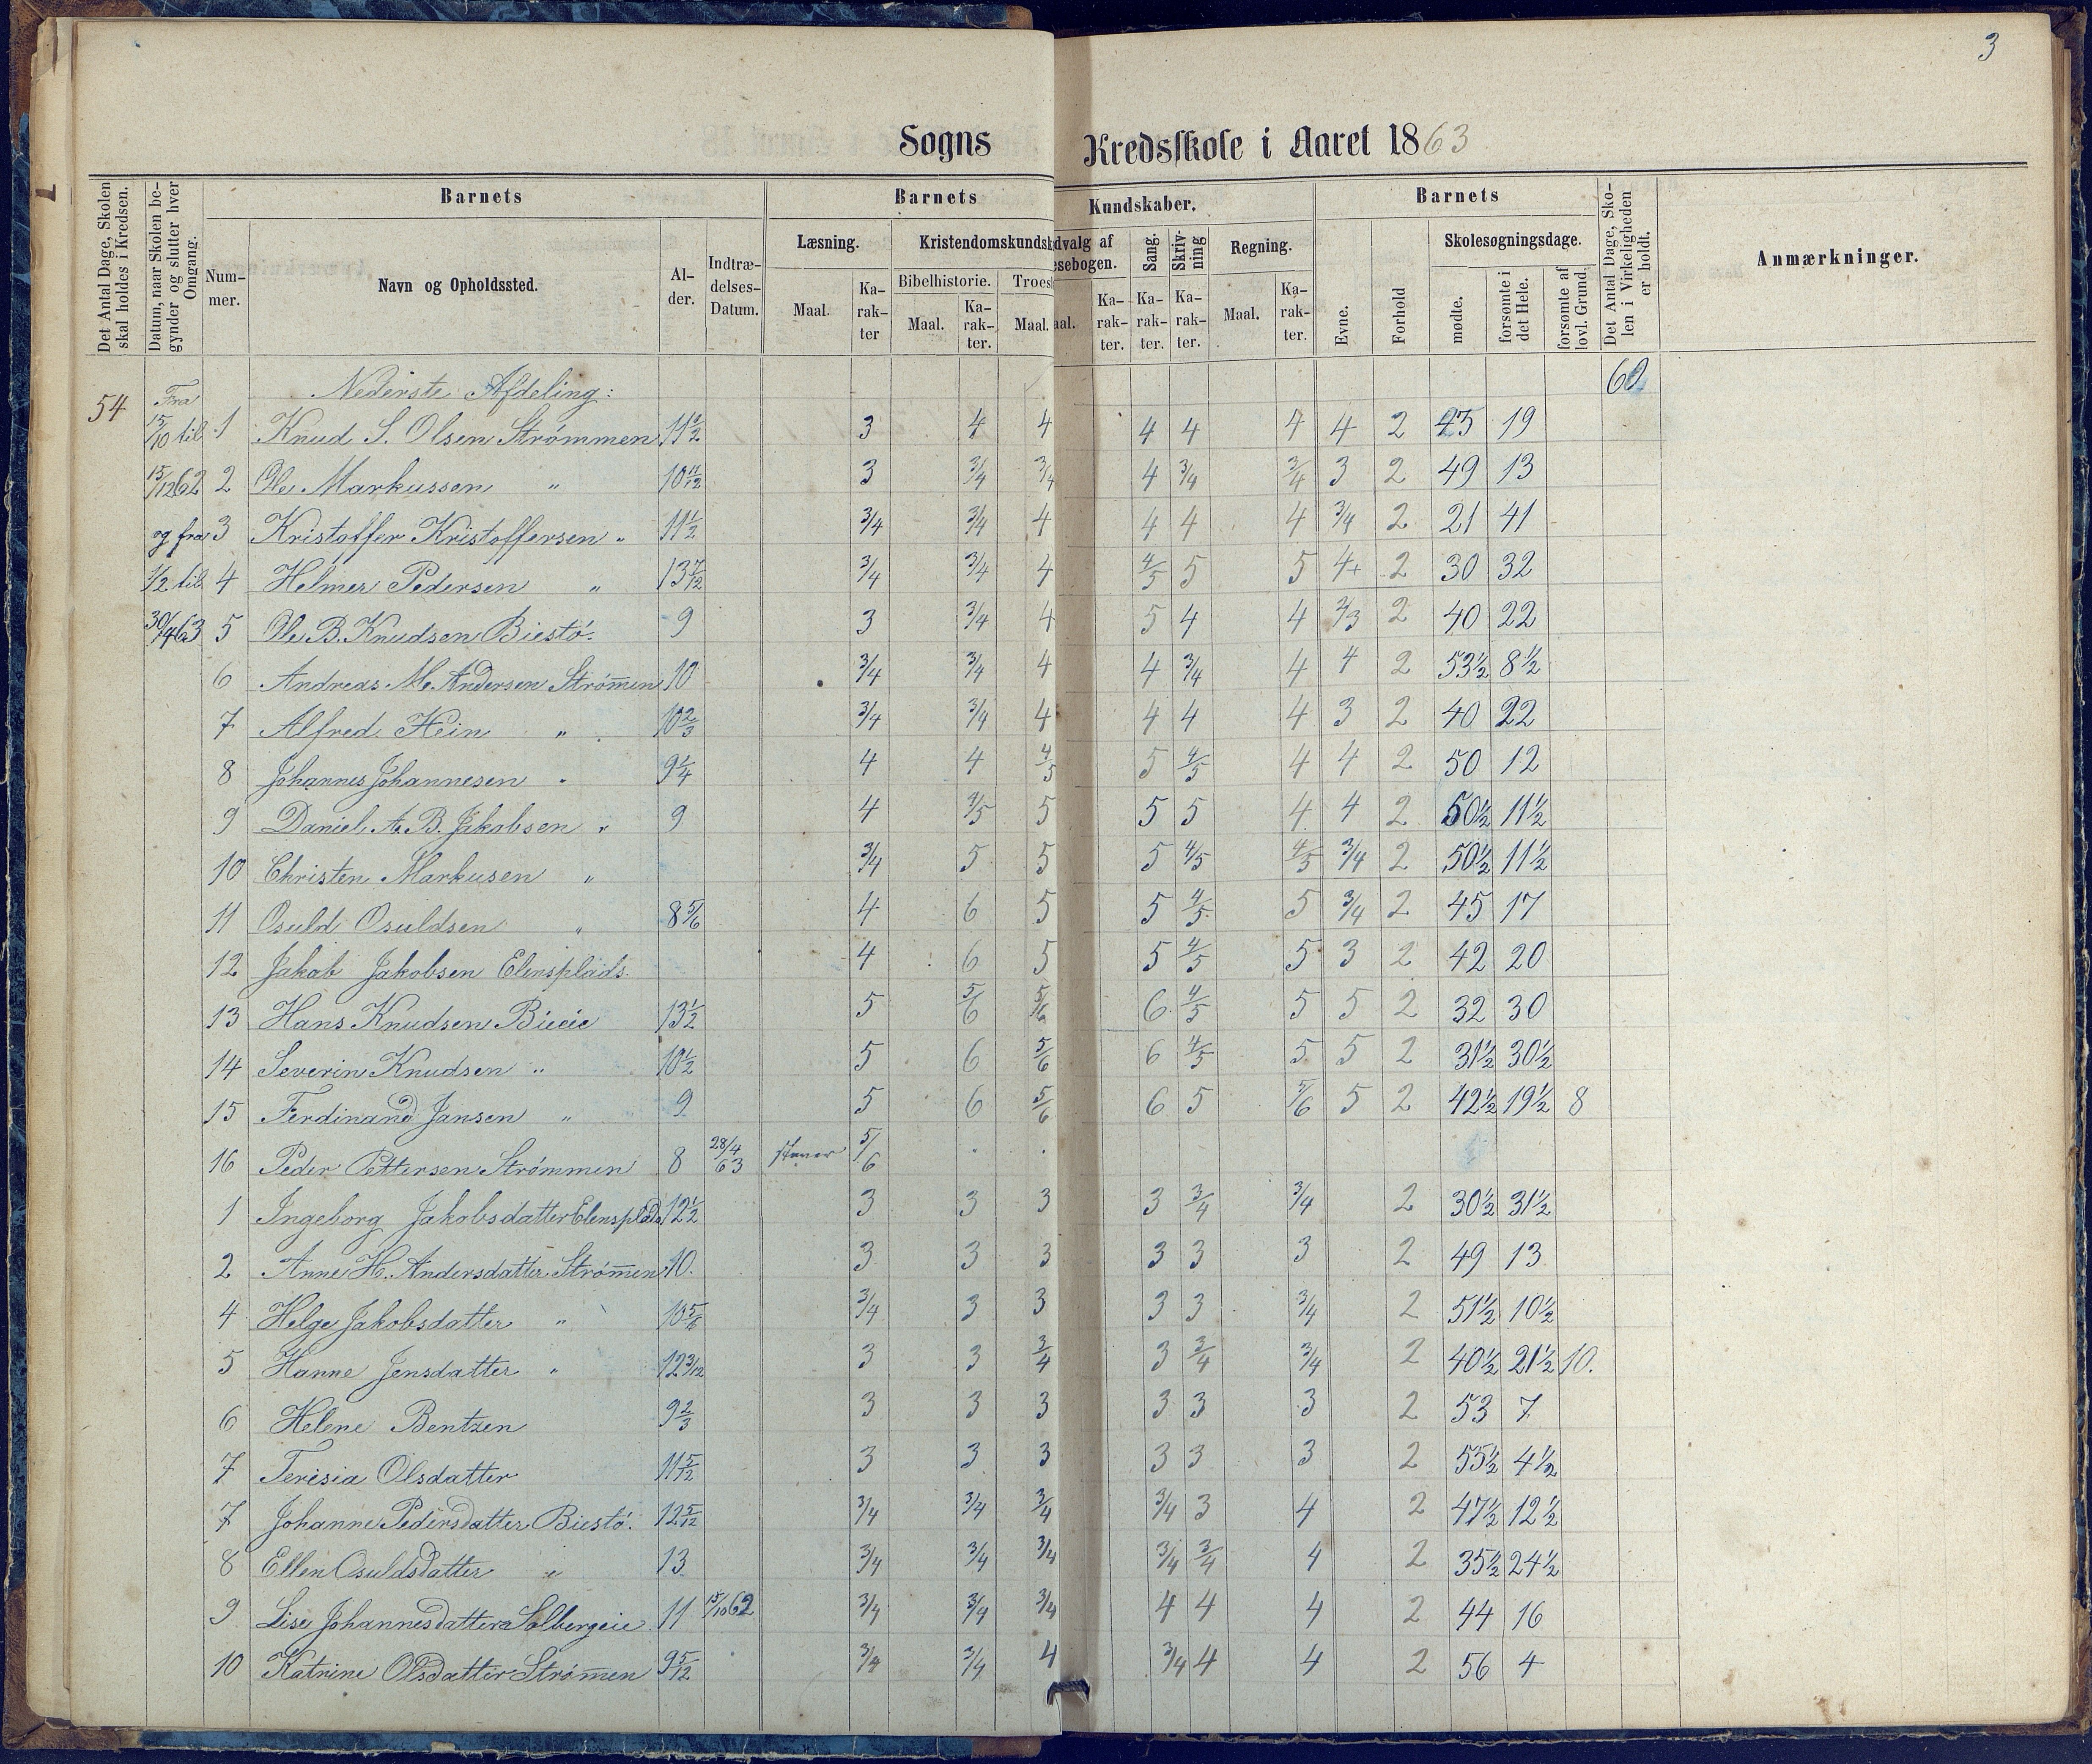 3
Sogns Kredsskole i Aaret 1863
Det Antal Dage, Skolen skal holdes i Kredsen.
Datum, naar Skolen begynder og slutter hver Omgang.
Barnets
Nummer.
Navn og Opholdssted.
Alder.
Indtrædelses-Datum.
Barnets Kundskaber.
Læsning.
Maal.
Karakter
Kristendomskundsk
Bibelhistorie.
Maal.
Karakter.
Troes
Maal.
dvalg af
esebogen.
aal.
Karakter.
Sang.
Karakter.
Skrivning
Karakter.
Regning.
Maal.
Karakter.
Barnets
Evne.
Forhold
Skolesøgningsdage.
mødte.
forsømte i det Hele.
forsømte af lovl. Grund.
Det Antal Dage, Skolen i Virkeligheden er holdt.
Anmærkninger.
54 Fra Nederste Afdeling: 60
15/10 til 1 Knud S. Olsen Strømmen 11 1/2 3 4 4 4 4 4 4 2 43 19
15/12 62 2 Ole Markussen " 10 11/12 3 3/4 3/4 4 3/4 3/4 3 2 49 13
og fra 3 Kristoffer Kristoffersen " 11 1/2 3/4 3/4 4 4 4 4 3/4 2 21 41
1/2 til 4 Helmer Pedersen " 13 7/12 3/4 3/4 4 4/5 5 5 4+ 2 30 32
30/4 63 5 Ole B. Knudsen Biestø. 9 3 3/4 4 5 4 4 2/3 2 40 22
6 Andreas M. Andersen Strøm̄en 10 3/4 3/4 4 4 3/4 4 4 2 53 1/2 8 1/2
7 Alfred Hein " 10 2/3 3/4 3/4 4 4 4 4 3 2 40 22
8 Johannes Johannesen " 9 1/4 4 4 4/5 5 4/5 4 4 2 50 12
9 Daniel A. B. Jakobsen " 9 4 4/5 5 5 5 4 4 2 50 1/2 11 1/2
10 Christen Markusen " 3/4 5 5 5 4/5 4/5 3/4 2 50 1/2 11 1/2
11 Osuld Osuldsen " 8 5/6 4 6 5 5 4/5 5 3/4 2 45 17
12 Jakob Jakobsen Elensplads. 4 6 5 5 4/5 5 3 2 42 20
13 Hans Knudsen Bieeie 13 1/2 5 5/6 5/6 6 4/5 5 5 2 32 30
14 Severin Knudsen " 10 1/2 5 6 5/6 6 4/5 5 5 2 31 1/2 30 1/2
15 Ferdinand Jansen " 9 5 6 5/6 6 5 5/6 5 2 42 1/2 19 1/2 8
16 Peder Pettersen Strømmen 8 28/4 63 staver 5/6
1 Ingeborg Jakobsdatter Elensplads 12 1/2 3 3 3 3 3/4 3/4 2 30 1/2 31 1/2
2 Anne H. Andersdatter Strøm̄en 10. 3 3 3 3 3 3 2 49 13
4 Helge Jakobsdatter " 10 5/6 3/4 3 3 3 3 3/4 2 51 1/2 10 1/2
5 Hanne Jensdatter " 12 3/12 3 3 3/4 3 3/4 3/4 2 40 1/2 21 1/2 10.
6 Helene Bentzen 9 2/3 3 3 3 3 3 3 2 53 7
7 Terisia Olsdatter 11 5/12 3 3 3 3 3 3 2 55 1/2 4 1/2
7 Johanne Pedersdatter Biestø. 12 5/12 3/4 3/4 3/4 3/4 3 4 2 47 1/2 12 1/2
8 Ellen Osuldsdatter " 13 3/4 3/4 3/4 3/4 3/4 4 2 35 1/2 24 1/2
9 Lise Johannesdatter Solbergeie 11 15/10 62 3/4 3/4 3/4 4 4 4 2 44 16
10 Katrine Olsdatter Strøm̄en 9 5/12 3/4 3/4 4 3/4 4 4 2 56 4